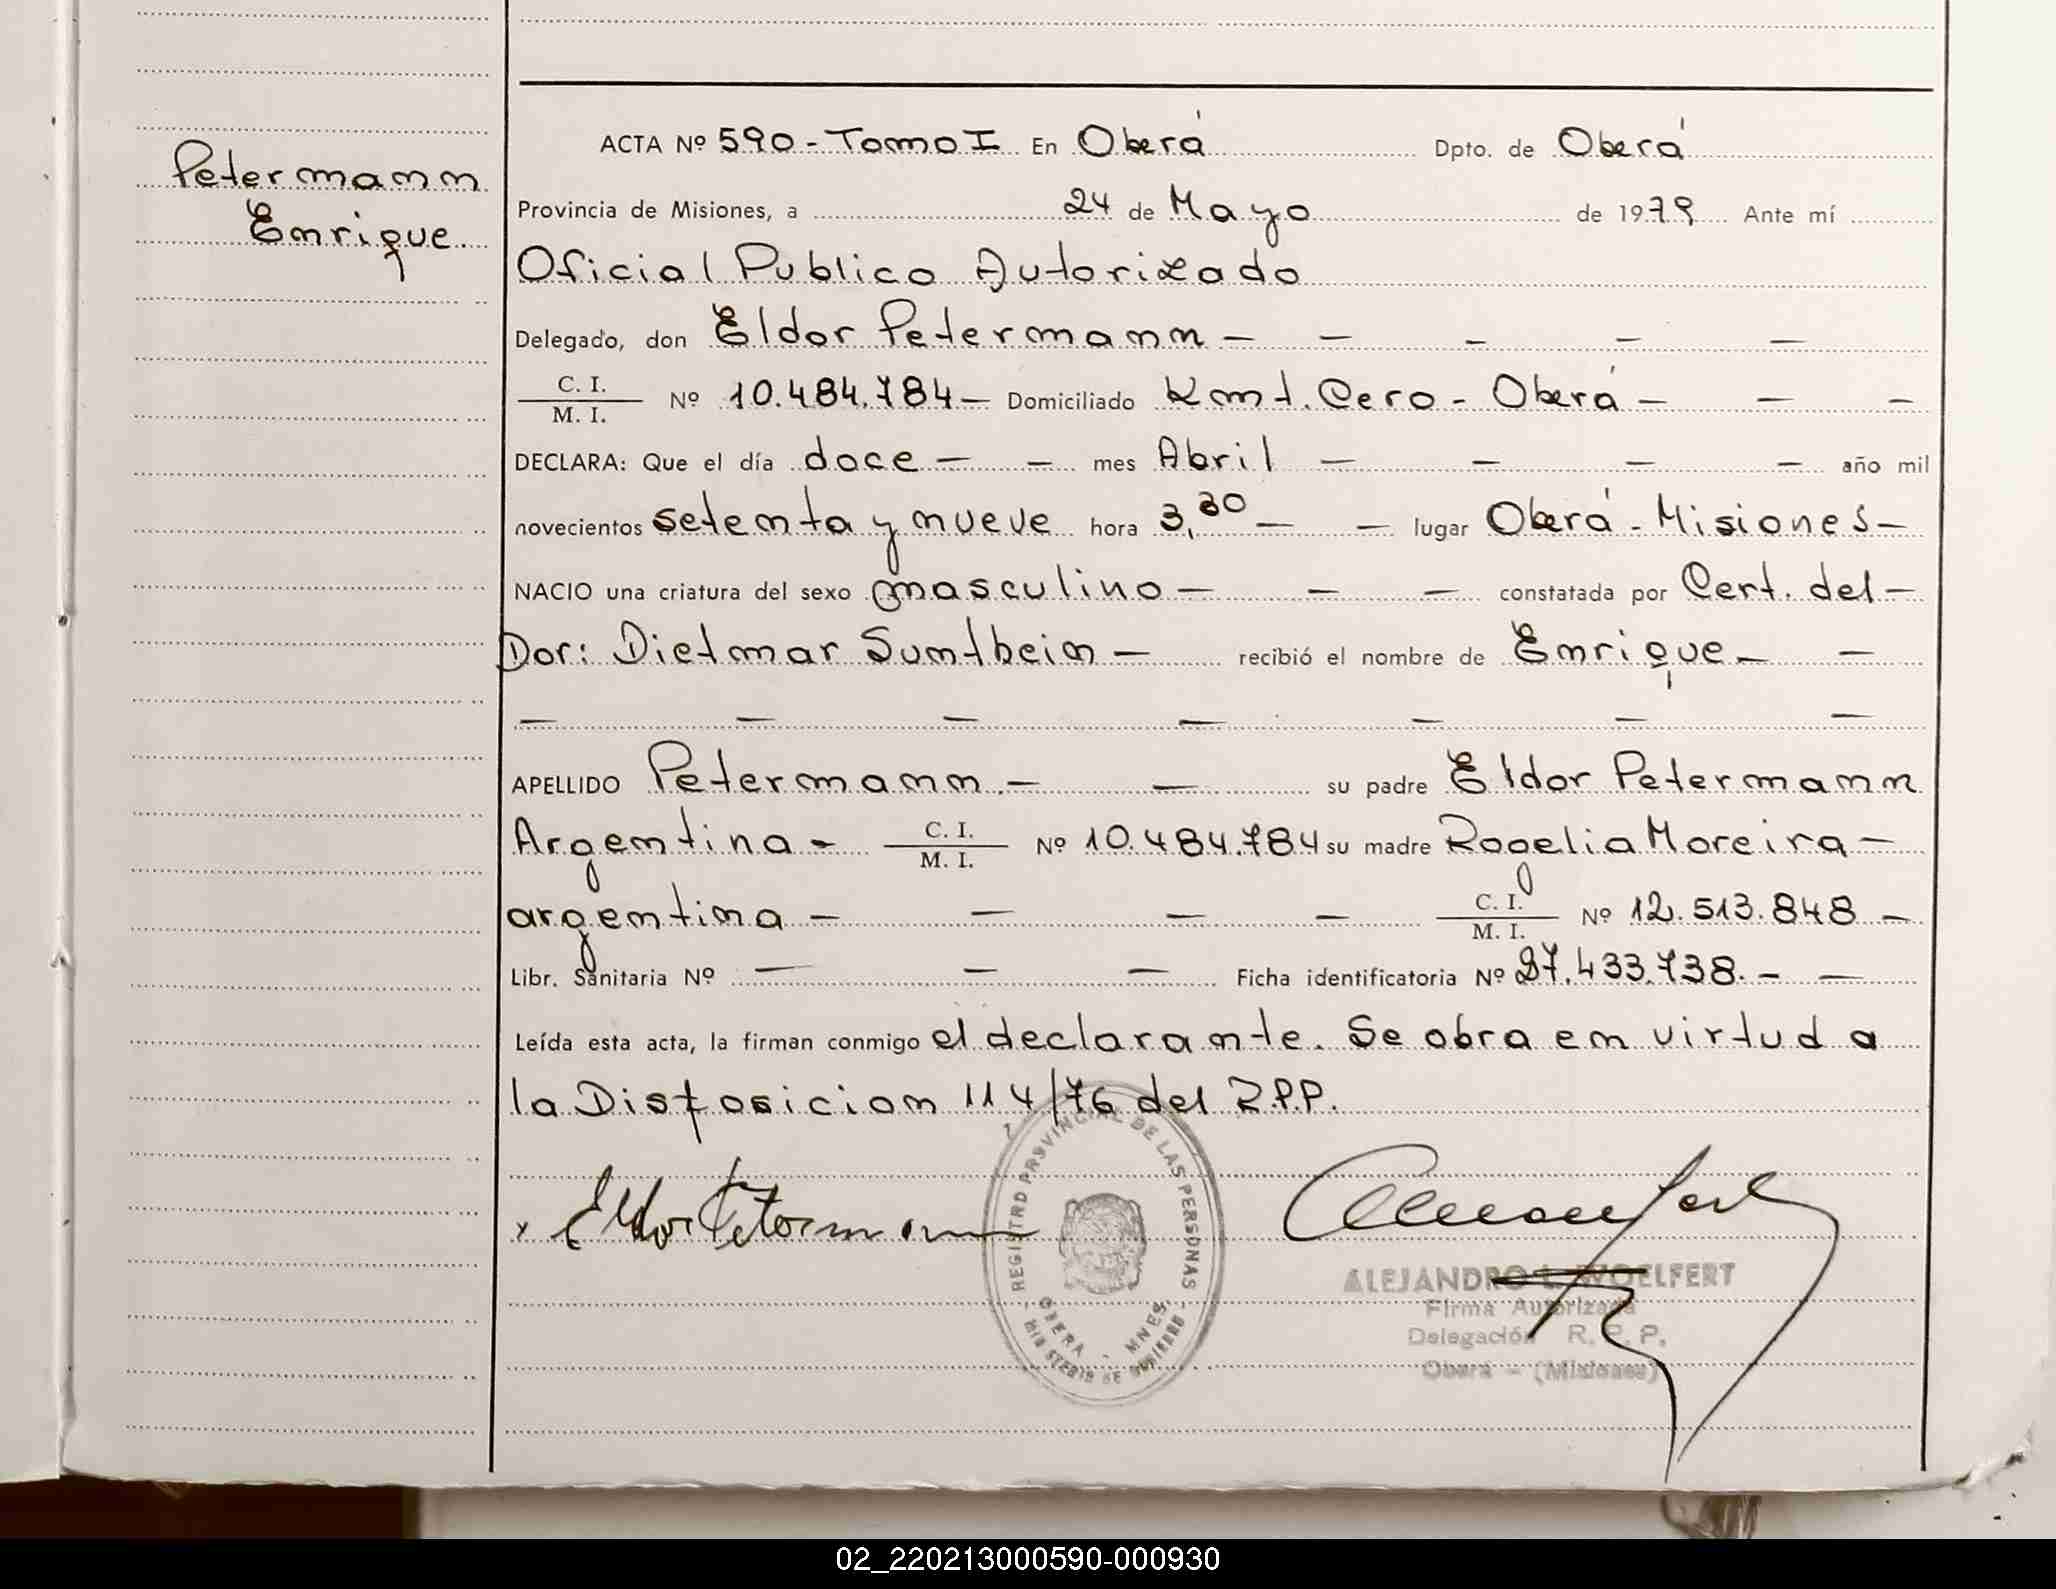 Petermann
Enrique
ACTA Nº 590 - Tomo I En Oberá Dpto. de Oberá
Provincia de Misiones, a 24 de Mayo de 1979 Ante mí
Oficial Publico Autorizado
Delegado, don Eldor Petermann — — — — —
C. I. / M. I. Nº 10.484.784 — Domiciliado Kmt. Cero - Oberá — — —
DECLARA: Que el día doce — — mes Abril — — — — año mil
novecientos setenta y nueve hora 3,30 — — lugar Oberá - Misiones —
NACIO una criatura del sexo masculino — — — constatada por Cert. del —
Dor: Dietmar Sumtbein — recibió el nombre de Enrique — —
— — — — — — —
APELLIDO Petermann — — su padre Eldor Petermann
Argentina - C. I. / M. I. Nº 10.484.784 su madre Rogelia Moreira —
argentina — — — — C. I. / M. I. Nº 12.513.848 —
Libr. Sanitaria Nº — — — Ficha identificatoria Nº 27.433.738. — —
Leída esta acta, la firman conmigo el declarante. Se obra en virtud a
la Disposicion 114/76 del R.P.P.
Eldor Petermann
REGISTRO PROVINCIAL DE LAS PERSONAS
OBERA - MNES.
MINISTERIO DE GOBIERNO
ALEJANDRO L. WOELFERT
Firma Autorizada
Delegación R. P. P.
Oberá - (Misiones)
02_220213000590-000930